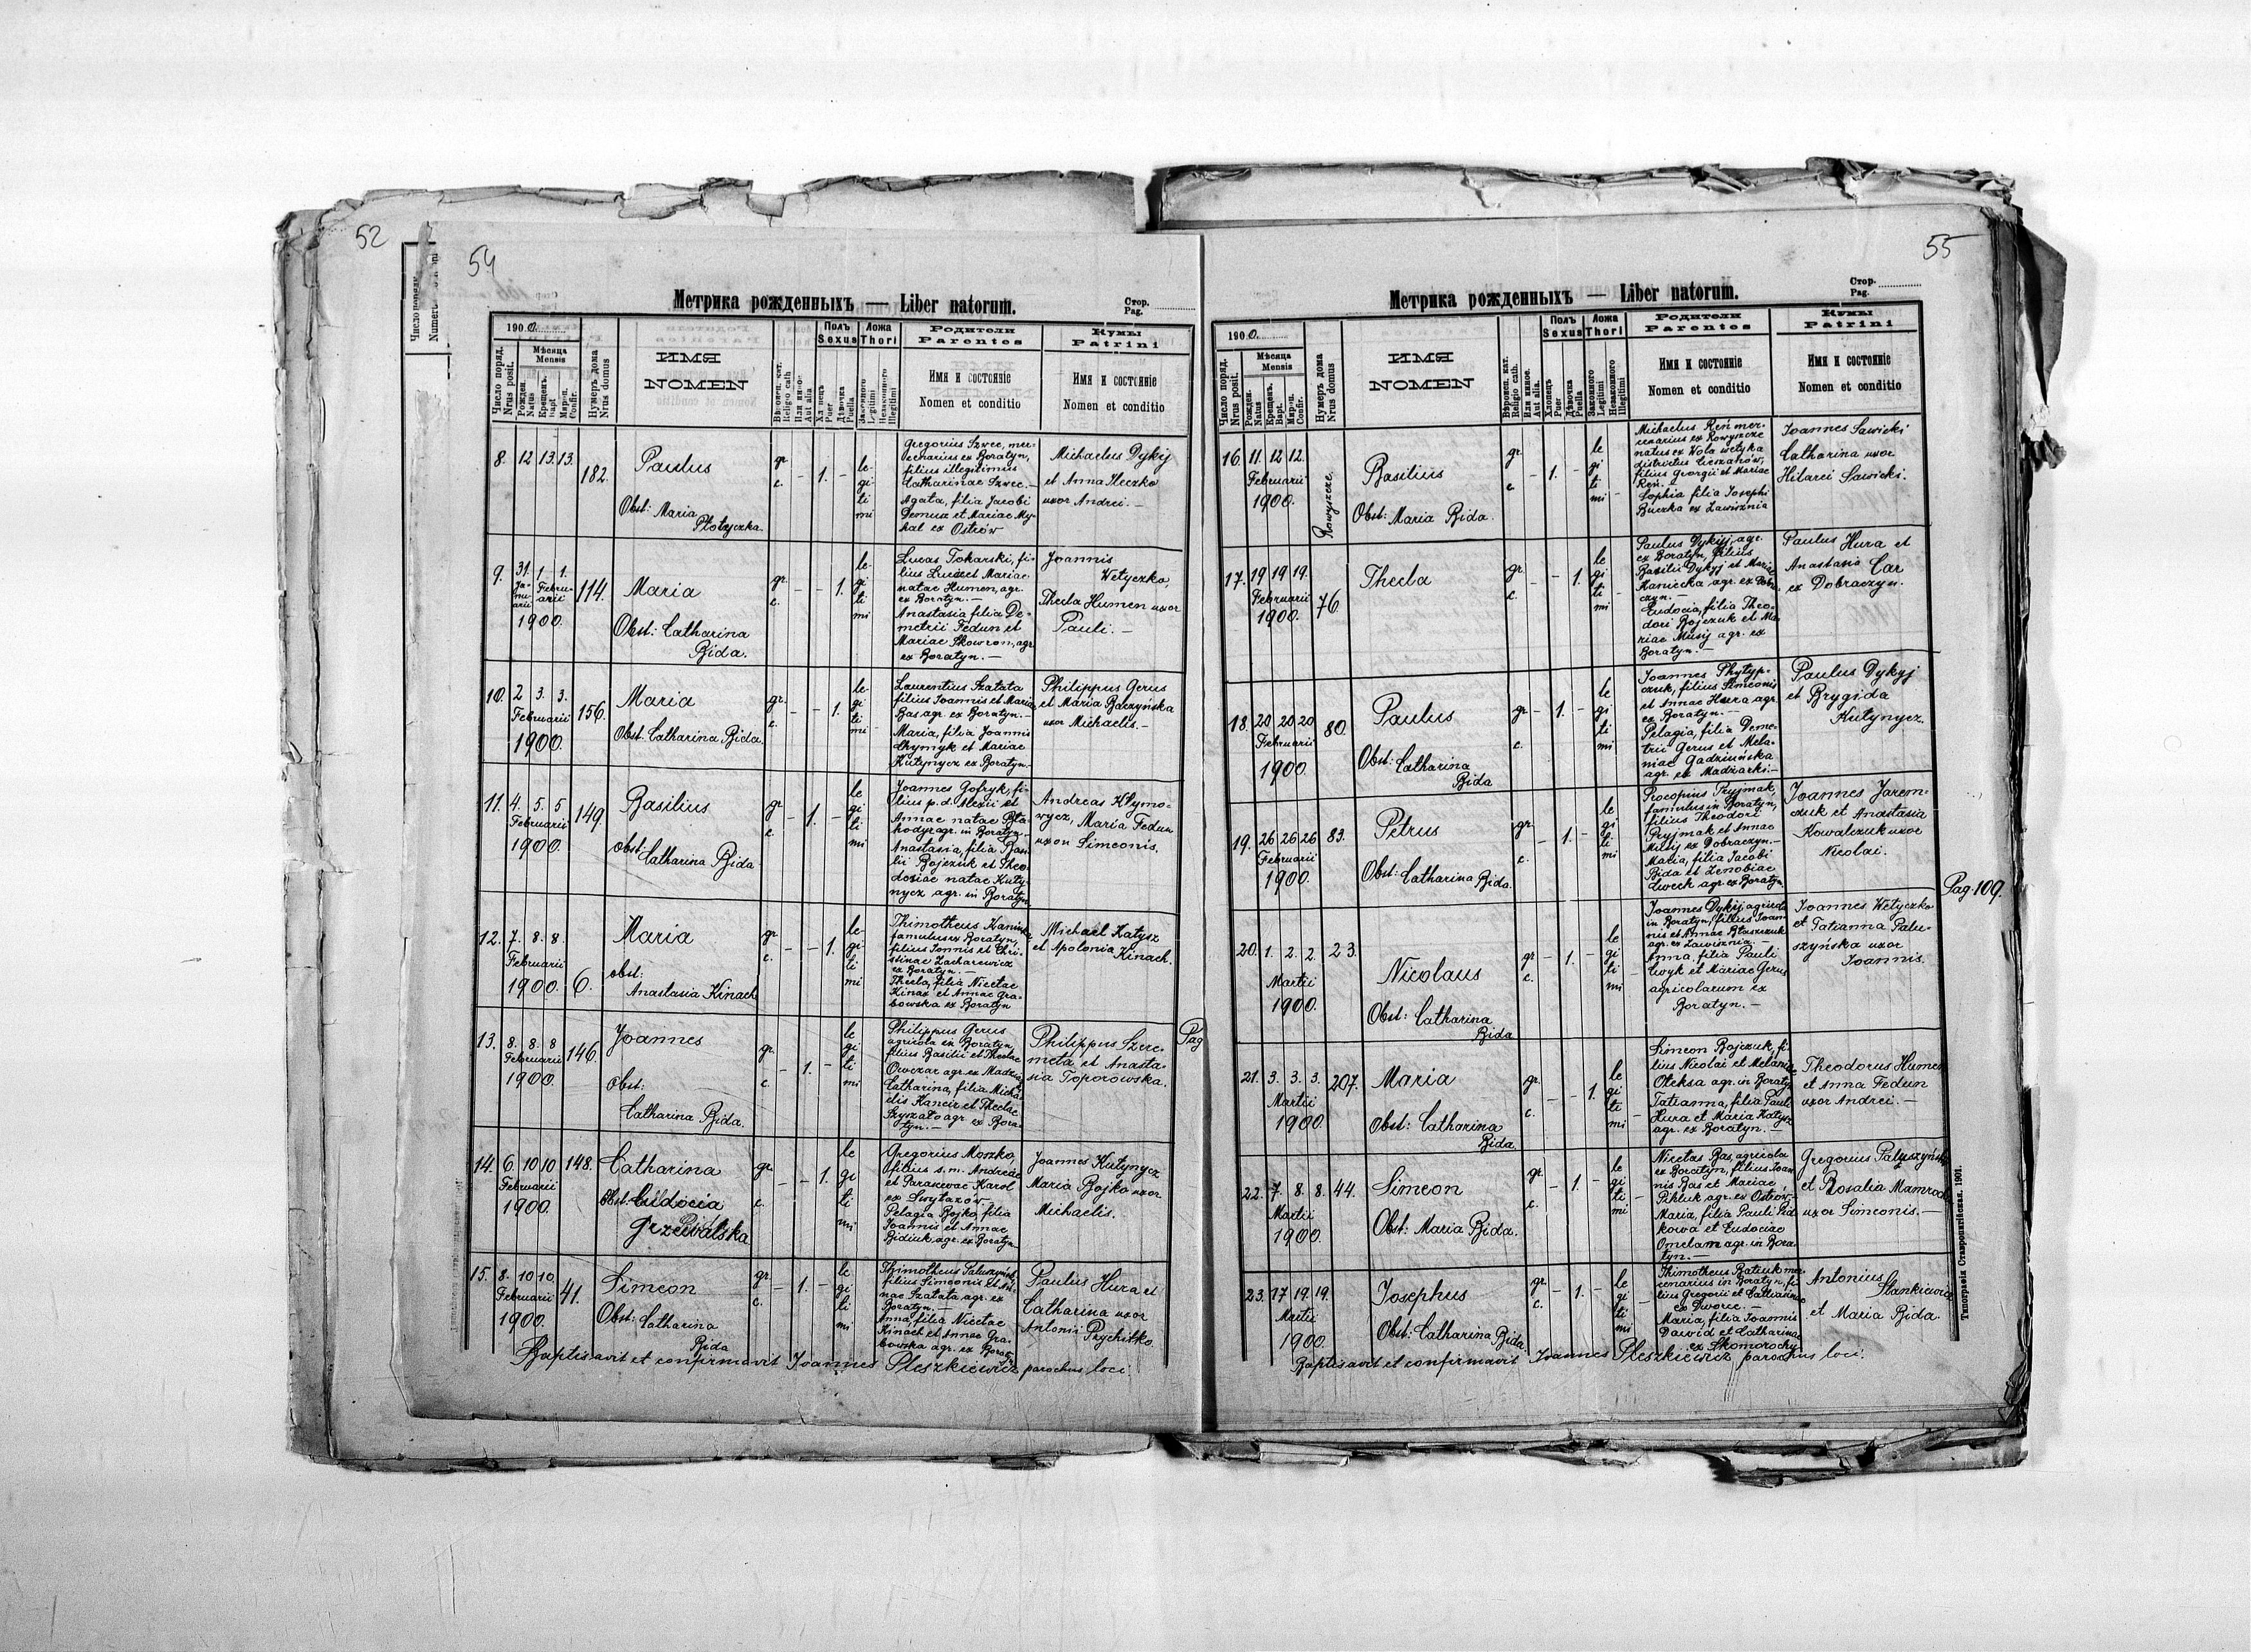 52
54
Метрика рожденныхъ — Liber natorum.
Стор.
Pag.
190 0.
Число поряд.
Nrus posit.
Мѣсяца
Mensis
Рожден.
Natus
Крещенъ.
Bapt.
Мироп.
Confir.
Нумеръ дома
Nrus domus
ИМЯ
NOMEN
Вѣроисп. кат.
Religio cath
Или инное.
Aut alia
Полъ
Sexus
Хлопецъ
Puer
Дѣвочка
Puella
Ложа
Thori
Законного
Legitimi
Незаконного
Illegitimi
Родители
Parentes
Имя и состоянiе
Nomen et conditio
Кумы
Patrini
Имя и состоянiе
Nomen et conditio
8. 12 13. 13. 182. Paulus
Obst: Maria
Płotyczka
gr. c. - 1. - le- gi ti mi
Gregorius Szwec, mer-
cenarius ex Boratyn,
filius illegitimus
Catharinae Szwec. —
Agata, filia Jacobi
Demus et Mariae My-
kal ex Ostrów
Michaelus Dykyj
et Anna Kleczko
uxor Andrei. —
9. 31. Januarii 1. 1. Februarii 1900. 114. Maria
Obst: Catharina
Bida.
gr. c. - - 1. le- gi ti mi
Lucas Tokarski, fi-
lius Lucae et Mariae
natae Humen, agr.
ex Boratyn. —
Anastasia, filia De-
metrii Fedun et
Mariae Skowron, agr.
ex Boratyn. —
Joannis
Wetyczko,
Thecla Humen uxor
Pauli. —
10. 2 3. 3. Februarii 1900. 156. Maria
Obst. Catharina Bida.
gr. c. - - 1. le- gi ti mi
Laurentius Szatata
filius Joannis et Maria
Bas agr. ex Boratyn. —
Maria, filia Joannis
Chymyk et Mariae
Kutynycz ex Boratyn.
Philippus Gerus
et Maria Baczyńska
uxor Michaelis. —
11. 4. 5. 5 Februarii 1900. 149. Basilius
obst:
Catharina Bida
gr. c. - 1. - le gi ti mi
Joannes Gofryk, fi-
lius p. d. Alexii et
Annae natae
agr. in Boratyn. —
Anastasia, filia Basi-
lii Bojczuk et Theo-
dosiae natae Kuty-
nycz agr. in Boratyn
Andreas Klymo-
wycz, Maria Fedun
uxor Simeonis.
12. 7. 8. 8. Februarii 1900. 6. Maria
obst:
Anastasia Kinach
gr. c. - - 1. le- gi ti mi
Thimotheus
famulus ex Boratyn,
filius Ionnis et Chri-
stinae Zacharewicz
ex Boratyn. —
Thecla, filia Nicetae
Kinax et Annae Gra-
bowska ex Boratyn
Michael Katysz
et Apolonia Kinach.
13. 8. 8. 8 Februarii 1900. 146. Joannes
Obst:
Catharina Bida.
gr. c. - 1. - le gi ti mi
Philippus Gerus
agricola ex Boratyn,
filius Basilii et Theclae
Owczar agr. ex
Catharina, filia Micha-
elis Kancir et Theclae
agr ex Bora-
tyn. —
Philippus Szere-
meta et Anasta-
sia Toporowska.
Pag
14. 6. 10 10 Februarii 1900. 148. Catharina
Obst: Eudocia
Grzewalska
gr. c. - - 1. le gi ti mi
Gregorius Moszko,
filius s. m. Andreae
et Parascevae Karol
ex Swytazów —
Pelagia Bojko, filia
Joannis et Annae
Bidiuk, agr. ex Boratyn
Joannes Kutynycz
Maria Bojko uxor
Michaelis.
15. 8. 10 10. Februarii 1900. 41. Simeon
Obst: Catharina
Bida
gr. c. - 1. - le gi ti mi
Thimotheus
filius Simeonis et An-
nae Szatata agr. ex
Boratyn. —
Anna, filia Nicetae
Kinach et Annae Gra-
bowska agr. ex Boratyn
Paulus Hura et
Catharina uxor
Antonii Prychitko.
Baptisavit et confirmavit Joannes Pleszkiewicz parochus loci.
55
Метрика рожденныхъ — Liber natorum.
Стор.
Pag.
190 0.
Число поряд.
Nrus posit.
Мѣсяца
Mensis
Рожден.
Natus
Крещенъ.
Bapt.
Мироп.
Confir.
Нумеръ дома
Nrus domus
ИМЯ
NOMEN
Вѣроисп. кат.
Religio cath.
Или инное.
Aut alia.
Полъ
Sexus
Хлопецъ
Puer
Дѣвочка
Puella
Ложа
Thori
Законного
Legitimi
Незаконного
Illegitimi
Родители
Parentes
Имя и состоянiе
Nomen et conditio
Кумы
Patrini
Имя и состоянiе
Nomen et conditio
16. 11. 12 12. Februarii 1900. Rowyszcze. Basilius
Obst: Maria Bida.
gr. c. - 1. - le gi ti mi -
Michaelus Reń mer-
cenarius ex Rowyszcze
natus ex Wola wetyka
districtus Cieszanów,
filius Georgii et Mariae
Reń. —
Sophia filia Josephi
Buczka ex Zawisznia
Joannes Sawicki
Catharina uxor
Hilarei Sawicki.
17. 19 19 19. Februarii 1900. 76 Thecla
gr. c. - - 1. le gi ti mi -
Paulus Dykyj, agr.
ex Boratyn, filius
Basilii Dykyj et Mariae
Kaniecka agr. ex Dobra-
czyn. —
Eudocia, filia Theo-
dori Bojczuk et Ma-
riae Musij agr. ex
Boratyn. —
Paulus Hura et
Anastasia Car
ex Dobraczyn.
18. 20 20 20 Februarii 1900. 80. Paulus
Obst: Catharina
Bida
gr. c. - 1. - le gi ti mi
Joannes Phytyp-
czuk, filius Simeonis
et Annae Hura agr.
ex Boratyn. —
Pelagia, filia Deme-
trii Gerus et Mela-
niae Gadzińska
agr. ex Madziarki. —
Paulus Dykyj
et Brygida
Kutynycz.
19. 26 26 26 Februarii 1900. 83. Petrus
Obst: Catharina Bida.
gr. c. - 1. - le gi ti mi
Procopius Pryjmak,
famulus in Boratyn,
filius Theodori
Pryjmak et Annae
Musij ex Dobraczyn. —
Maria, filia Jacobi
Bida et Zenobiae
Cweck agr. ex Boratyn
Joannes Jarem-
czuk et Anastasia
Kowalczuk uxor
Nicolai.
Pag. 109.
20. 1. 2. 2. Martii 1900. 23. Nicolaus
Obst: Catharina
Bida
gr. c. - 1. - le gi ti mi
Joannes Dykij, agricola
in Boratyn, filius Joan-
nis et Annae Błaszczuk
agr. ex Zawisznia. —
Anna, filia Pauli
Cwyk et Mariae Gerus
agricolarum ex
Boratyn. —
Joannes Wetyczko
et Tatianna Palu-
szyńska uxor
Joannis.
21. 3. 3. 3. Martii 1900. 207. Maria
Obst: Catharina
Bida.
gr. c. - - 1. le gi ti mi -
Simeon Bojczuk, fi-
lius Nicolai et Melaniae
Oteksa agr. in Boratyn
Tatianna, filia Pauli
Hura et Maria Katysz
agr. ex Boratyn. —
Theodorus Humen
et Anna Fedun
uxor Andrei. —
22. 7. 8. 8. Martii 1900. 44. Simeon
Obst: Maria Bida.
gr. c. - 1. - le gi ti mi -
Nicetas Bas, agricola
ex Boratyn, filius Joan-
nis Bas et Mariae
Pikluk agr. ex Ostrów —
Maria, filia Pauli Sid-
kowa et Eudociae
Omelan agr. in Bora-
tyn. —
Gregorius Paluszyński
et Rosalia Mamroch
uxor Simeonis. —
23. 17 19. 19. Martii 1900. Josephus
Obst: Catharina Bida
gr. c. - 1. - le gi ti mi -
Thimotheus Batiuk mer-
cenarius in Boratyn, fi-
lius Gregorii et Catharinae
ex Dworce. —
Maria, filia Joannis
Dawid et Catharinae
ex Skomorochy
Antonius
Stankiewicz
et Maria Bida.
Baptisavit et confirmavit Joannes Pleszkiewicz parochus loci.
Типографiя Ставропигiйская. 1901.